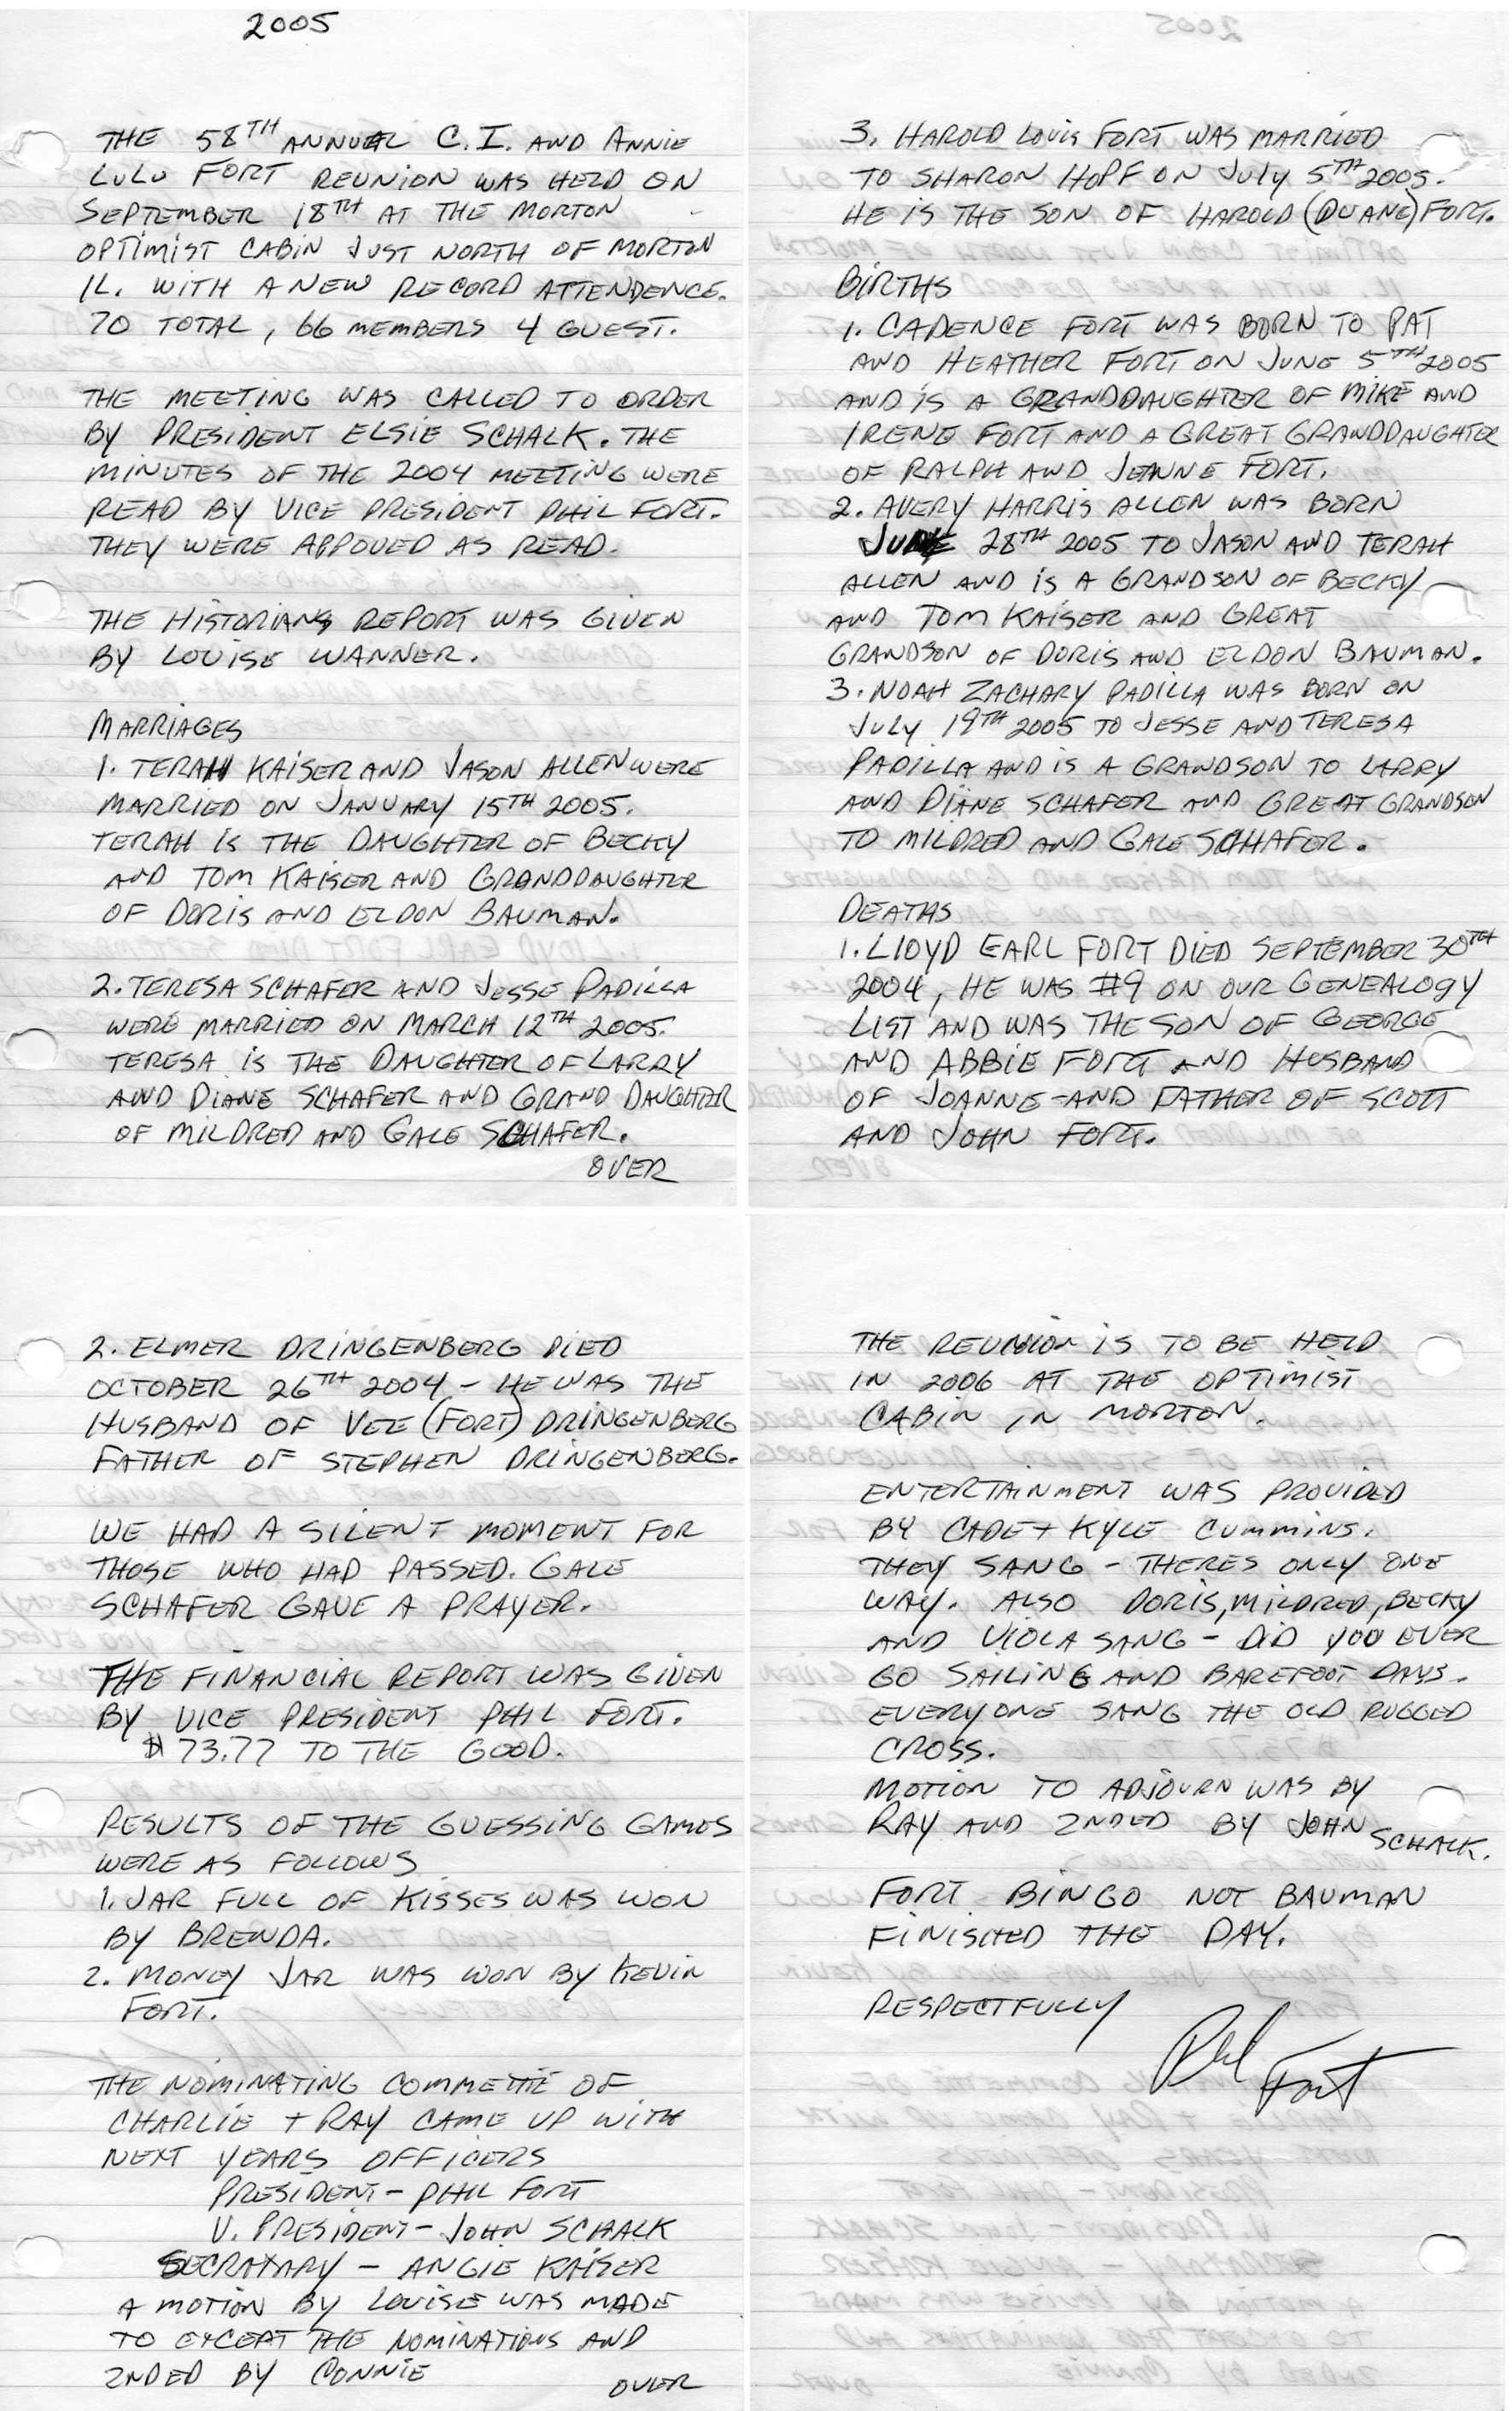 2005
THE 58TH ANNUAL C.I. AND ANNIE
LULU FORT REUNION WAS HELD ON
SEPTEMBER 18TH AT THE MORTON
OPTIMIST CABIN JUST NORTH OF MORTON
IL. WITH A NEW RECORD ATTENDENCE.
70 TOTAL, 66 MEMBERS 4 GUEST.
THE MEETING WAS CALLED TO ORDER
BY PRESIDENT ELSIE SCHALK. THE
MINUTES OF THE 2004 MEETING WERE
READ BY VICE PRESIDENT PHIL FORT.
THEY WERE APPOVED AS READ.
THE HISTORIANS REPORT WAS GIVEN
BY LOUISE WANNER.
MARRIAGES
1. TERAH KAISER AND JASON ALLEN WERE
MARRIED ON JANUARY 15TH 2005.
TERAH IS THE DAUGHTER OF BECKY
AND TOM KAISER AND GRANDDAUGHTER
OF DORIS AND ELDON BAUMAN.
2. TERESA SCHAFER AND JESSE PADILLA
WERE MARRIED ON MARCH 12TH 2005.
TERESA IS THE DAUGHTER OF LARRY
AND DIANE SCHAFER AND GRAND DAUGHTER
OF MILDRED AND GALE SCHAFER.
OVER
3. HAROLD LOUIS FORT WAS MARRIED
TO SHARON HOPF ON JULY 5TH 2005.
HE IS THE SON OF HAROLD (DUANE) FORT.
BIRTHS
1. CADENCE FORT WAS BORN TO PAT
AND HEATHER FORT ON JUNE 5TH 2005
AND IS A GRANDDAUGHTER OF MIKE AND
IRENE FORT AND A GREAT GRANDDAUGHTER
OF RALPH AND JEANNE FORT.
2. AVERY HARRIS ALLEN WAS BORN
JUNE 28TH 2005 TO JASON AND TERAH
ALLEN AND IS A GRANDSON OF BECKY
AND TOM KAISER AND GREAT
GRANDSON OF DORIS AND ELDON BAUMAN.
3. NOAH ZACHARY PADILLA WAS BORN ON
JULY 19TH 2005 TO JESSE AND TERESA
PADILLA AND IS A GRANDSON TO LARRY
AND DIANE SCHAFER AND GREAT GRANDSON
TO MILDRED AND GALE SCHAFER.
DEATHS
1. LLOYD EARL FORT DIED SEPTEMBER 30TH
2004, HE WAS #9 ON OUR GENEALOGY
LIST AND WAS THE SON OF GEORGE
AND ABBIE FORT AND HUSBAND
OF JOANNE - AND FATHER OF SCOTT
AND JOHN FORT.
2. ELMER DRINGENBERG DIED
OCTOBER 26TH 2004 - HE WAS THE
HUSBAND OF VEE (FORT) DRINGENBERG
FATHER OF STEPHEN DRINGENBERG.
WE HAD A SILENT MOMENT FOR
THOSE WHO HAD PASSED. GALE
SCHAFER GAVE A PRAYER.
THE FINANCIAL REPORT WAS GIVEN
BY VICE PRESIDENT PHIL FORT.
$73.77 TO THE GOOD.
RESULTS OF THE GUESSING GAMES
WERE AS FOLLOWS
1. JAR FULL OF KISSES WAS WON
BY BRENDA.
2. MONEY JAR WAS WON BY KEVIN
FORT.
THE NOMINATING COMMETTIE OF
CHARLIE + RAY CAME UP WITH
NEXT YEARS OFFICERS
PRESIDENT - PHIL FORT
V. PRESIDENT - JOHN SCHALK
SECRATARY - ANGIE KAISER
A MOTION BY LOUISE WAS MADE
TO EXCEPT THE NOMINATIONS AND
2NDED BY CONNIE
OVER
THE REUNION IS TO BE HELD
IN 2006 AT THE OPTIMIST
CABIN IN MORTON.
ENTERTAINMENT WAS PROVIDED
BY CADE + KYLE CUMMINS.
THEY SANG - THERES ONLY ONE
WAY. ALSO DORIS, MILDRED, BECKY
AND VIOLA SANG - DID YOU EVER
GO SAILING AND BAREFOOT DAYS.
EVERYONE SANG THE OLD RUGGED
CROSS.
MOTION TO ADJOURN WAS BY
RAY AND 2NDED BY JOHN SCHALK.
FORT BINGO NOT BAUMAN
FINISHED THE DAY.
RESPECTFULLY
Phil Fort